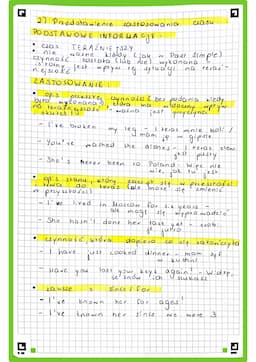 2) Przedstawienie zastosowania czasu
PODSTAWOWE INFORMACJE:
• czas TERAŹNIEJSZY
• nie ważne kiedy (jak w Past Simple)
czynność została (lub nie) wykonana
istotny jest wpływ tej sytuacji na teraź-
niejszość
ZASTOSOWANIE:
• opis przeszłej czynności bez podania kiedy
była wykonana, która
na teraźniejszość
skutki
- I've broken my leg - i teraz mnie boli /
mam ją w gipsie
- You've washed the dishes - i teraz zlew
jest pusty
- She's never been to Poland. Więc nie
wie, jak tu jest
• opis stanu, który zaczął się w przeszłości i
trwa do teraz (ale może się zmienić
w przyszłości)
- I've lived in Moscow for
ale mogę się wyprowadzić
- She hasn't done her task yet - zrobi
je jutro
• czynność, która dopiero co się zakończyła
- I have just cooked dinner - mam syf
w kuchni
- Have you lost your keys again? - Widzę,
że znów ich szukasz
• zawsze z since/for
- I've known her for ages!
- I've known her since we were 3